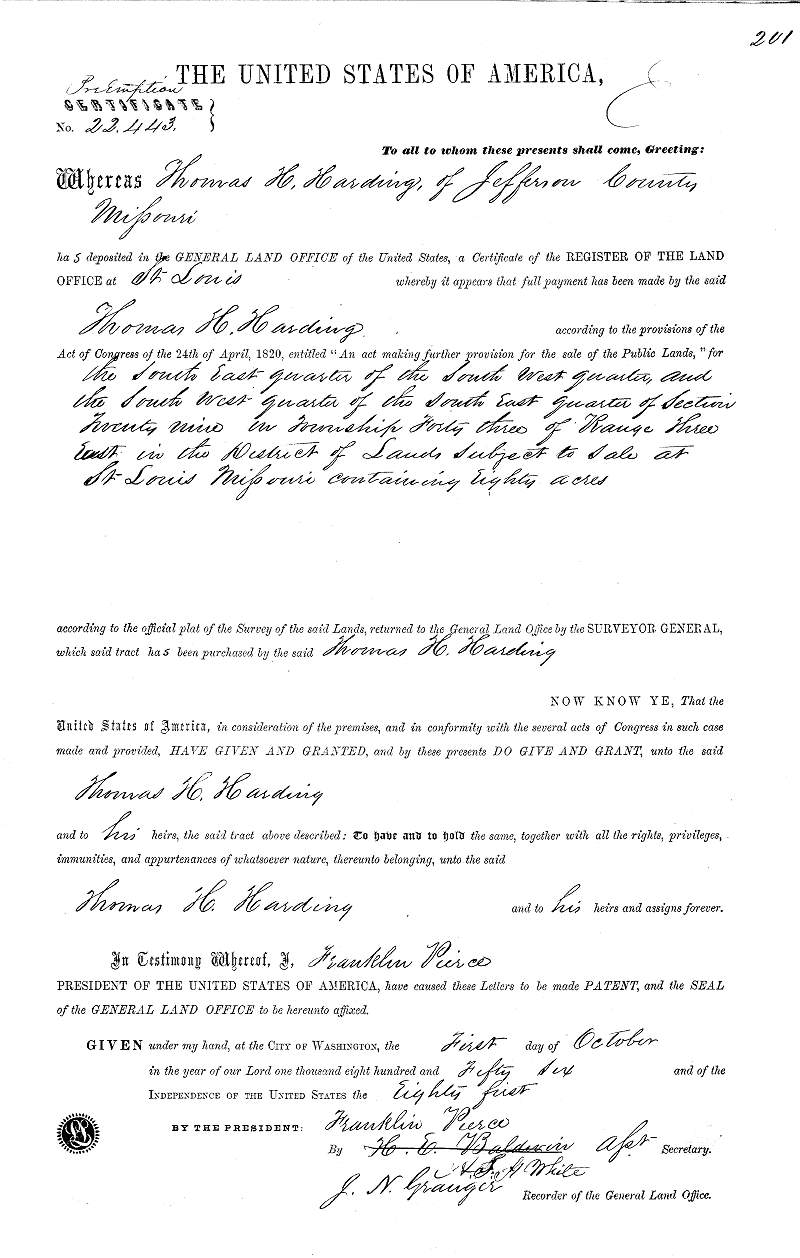 201
THE UNITED STATES OF AMERICA,
PreEmption
CERTIFICATE
No. 22.443.
To all to whom these presents shall come, Greeting:
Whereas Thomas H. Harding, of Jefferson County
Missouri
has deposited in the GENERAL LAND OFFICE of the United States, a Certificate of the REGISTER OF THE LAND
OFFICE at St Louis whereby it appears that full payment has been made by the said
Thomas H. Harding according to the provisions of the
Act of Congress of the 24th of April, 1820, entitled "An act making further provision for the sale of the Public Lands," for
the South East quarter of the South West quarter, and
the South West quarter of the South East quarter of Section
Twenty nine in Township Forty three of Range Three
East in the District of Lands Subject to Sale at
St Louis Missouri containing Eighty acres
according to the official plat of the Survey of the said Lands, returned to the General Land Office by the SURVEYOR GENERAL,
which said tract has been purchased by the said Thomas H. Harding
NOW KNOW YE, That the
United States of America, in consideration of the premises, and in conformity with the several acts of Congress in such case
made and provided, HAVE GIVEN AND GRANTED, and by these presents DO GIVE AND GRANT, unto the said
Thomas H. Harding
and to his heirs, the said tract above described: To have and to hold the same, together with all the rights, privileges,
immunities, and appurtenances of whatsoever nature, thereunto belonging, unto the said
Thomas H. Harding and to his heirs and assigns forever.
In Testimony Whereof, I, Franklin Pierce
PRESIDENT OF THE UNITED STATES OF AMERICA, have caused these Letters to be made PATENT, and the SEAL
of the GENERAL LAND OFFICE to be hereunto affixed.
GIVEN under my hand, at the CITY OF WASHINGTON, the First day of October
in the year of our Lord one thousand eight hundred and Fifty Six and of the
INDEPENDENCE OF THE UNITED STATES the Eighty first
BY THE PRESIDENT: Franklin Pierce
By H. E. Baldwin Asst Secretary.
White
J. N. Granger Recorder of the General Land Office.